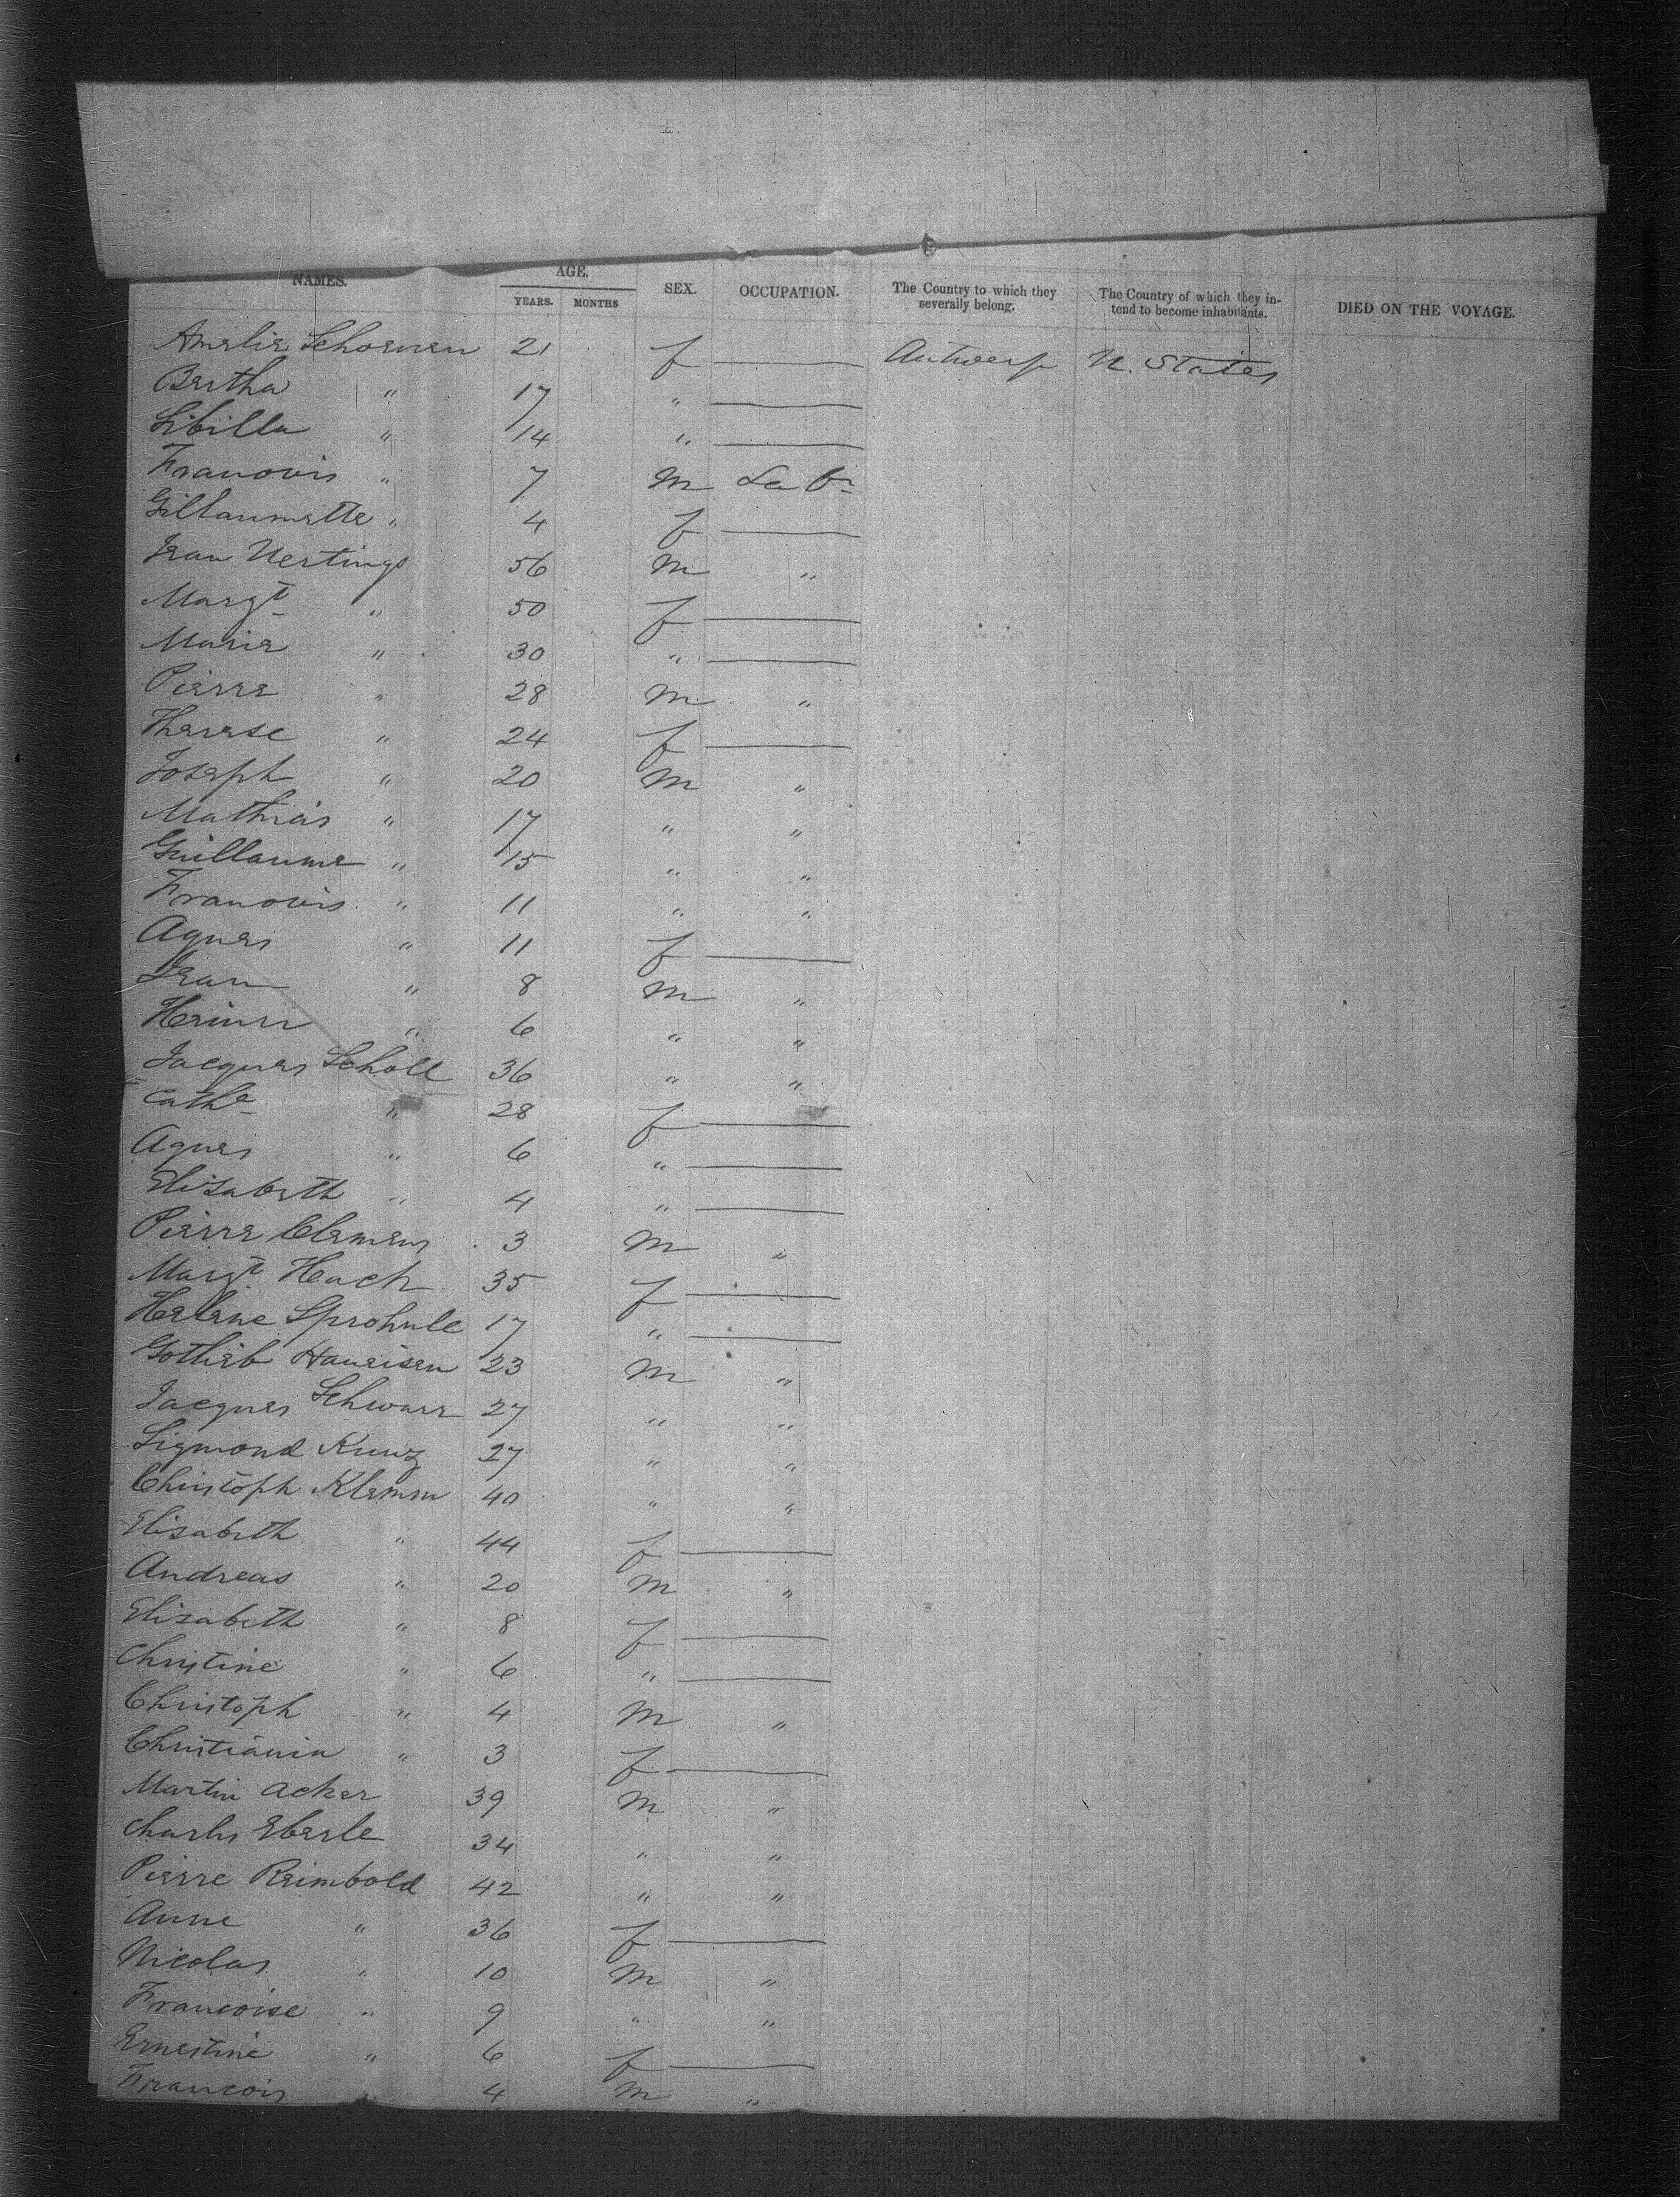 NAMES. AGE. SEX. OCCUPATION. The Country to which they severally belong. The Country of which they intend to become inhabitants. DIED ON THE VOYAGE.
YEARS. MONTHS
Amelie Schoenen 21 f — Antwerp U. States
Bertha " 17 " —
Sibilla " 14 " —
Francois " 7 m Labr
Gillaumette " 4 f —
Jean Nertings 56 m "
Margt " 50 f —
Marie " 30 " —
Pierre " 28 m "
Therese " 24 f —
Joseph " 20 m "
Mathias " 17 " "
Guillaume " 15 " "
Francois " 11 " "
Agnes " 11 f —
Jean " 8 m "
" 6 " "
Jacques Scholl 36 " "
Cathe " 28 f —
Agnes " 6 " —
Elisabeth " 4 " —
Pierre Clemens 3 m "
Margt Hach 35 f —
Helene Sprohnle 17 " —
Gotlieb Haueisen 23 m "
Jacques Schwarz 27 " "
Sigmond Kunz 27 " "
Christoph Klemm 40 " "
Elisabeth " 44 f —
Andreas " 20 m "
Elisabeth " 8 f —
Christine " 6 " —
Christoph " 4 m "
Christianin " 3 f —
Martin Acker 39 m "
Charles Eberle 34 " "
Pierre Reimbold 42 " "
Anne " 36 f —
Nicolas " 10 m "
Francoise " 9 " "
Ernestine " 6 f —
Francois " 4 m "